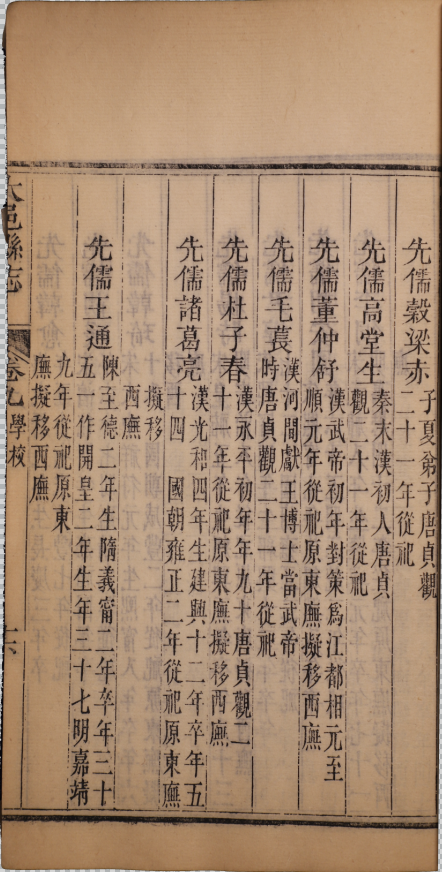 先儒穀梁赤
子夏弟子唐貞觀
二十一年從祀
先儒高堂生
秦末漢初人唐貞
觀二十一年從祀
先儒董仲舒
漢武帝初年對策爲江都相元至
順元年從祀原東廡擬移西廡
先儒毛萇
漢河間獻王博士當武帝
時唐貞觀二十一年從祀
先儒杜子春
漢永平初年年九十唐貞觀二
十一年從祀原東廡擬移西廡
先儒諸葛亮
漢光和四年生建興十二年卒年五
十四　國朝雍正二年從祀原東廡
擬移
西廡
先儒王通
陳至德二年生隋義甯二年卒年三十
五一作開皇二年生年三十七明嘉靖
九年從祀原東
廡擬移西廡
大邑縣志
卷九
學校